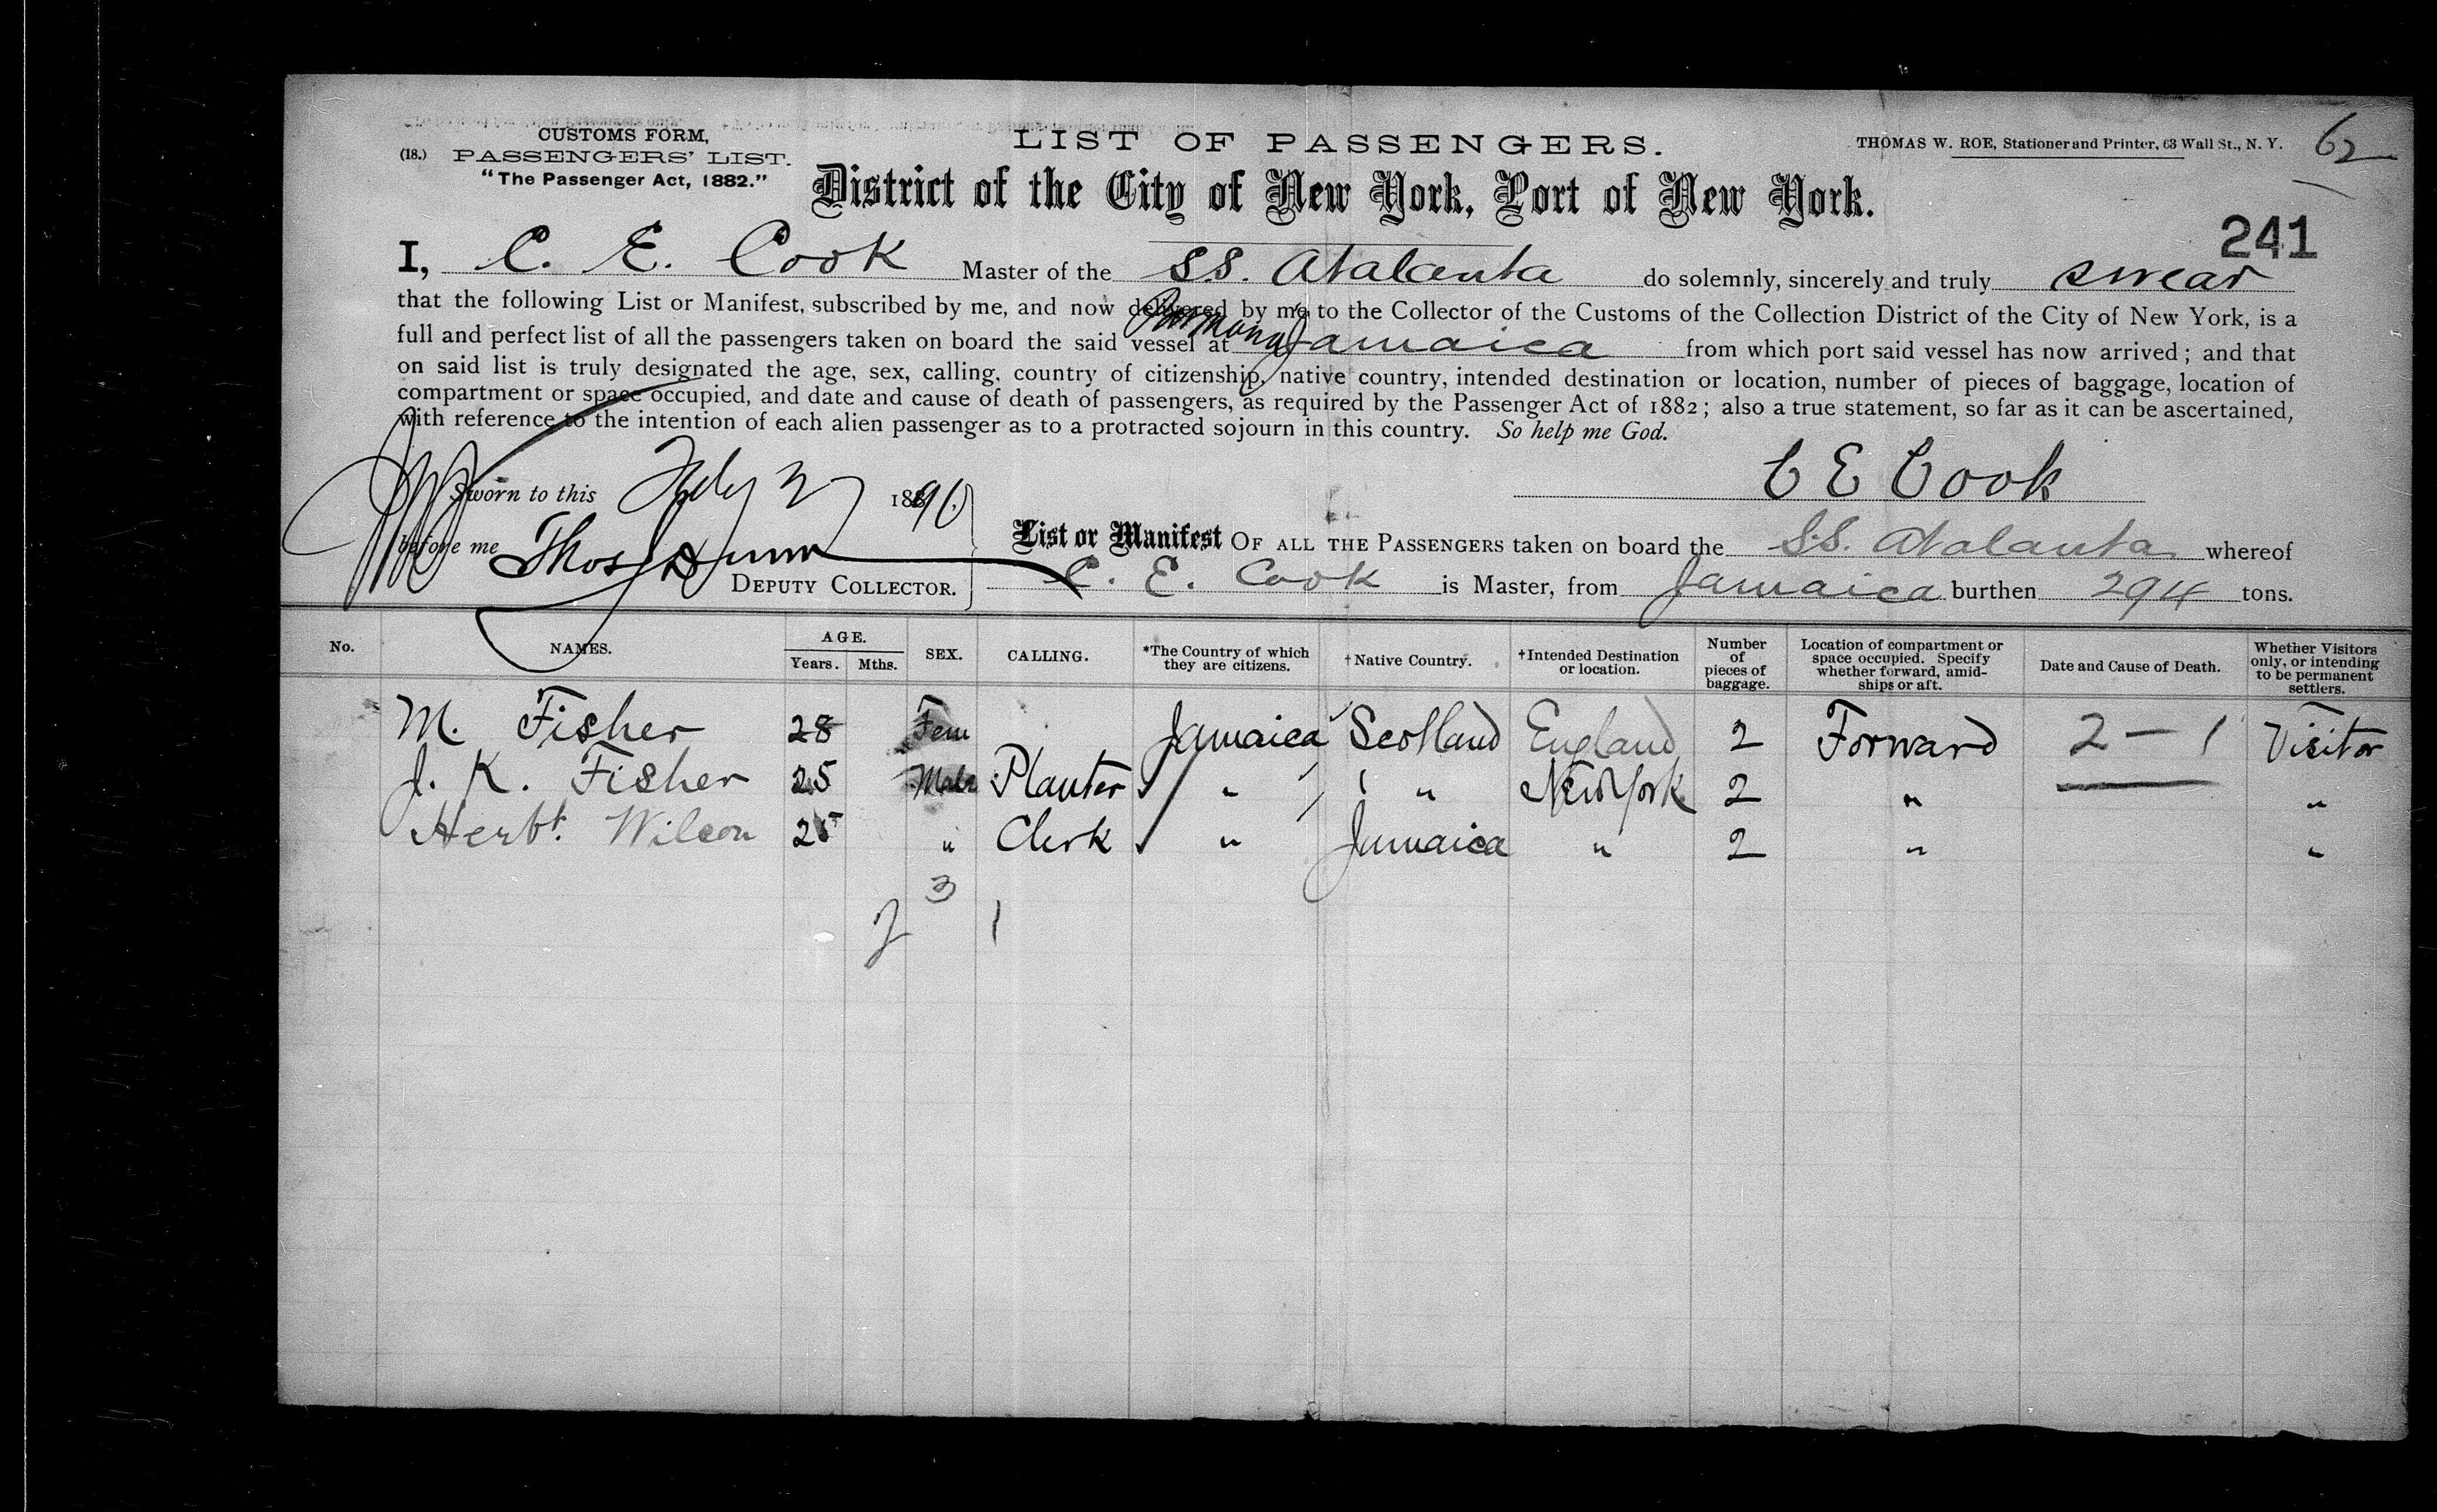 CUSTOMS FORM,
(18.) PASSENGERS' LIST.
"The Passenger Act, 1882."
LIST OF PASSENGERS.
THOMAS W. ROE, Stationer and Printer, 63 Wall St., N. Y.
62
District of the City of New York, Port of New York.
241
I, C. E. Cook Master of the S.S. Atalanta do solemnly, sincerely and truly swear
that the following List or Manifest, subscribed by me, and now delivered by me to the Collector of the Customs of the Collection District of the City of New York, is a
full and perfect list of all the passengers taken on board the said vessel at Jamaica from which port said vessel has now arrived; and that
on said list is truly designated the age, sex, calling, country of citizenship, native country, intended destination or location, number of pieces of baggage, location of
compartment or space occupied, and date and cause of death of passengers, as required by the Passenger Act of 1882; also a true statement, so far as it can be ascertained,
with reference to the intention of each alien passenger as to a protracted sojourn in this country. So help me God.
C E Cook
Sworn to this 188
before me Thos Dunn
DEPUTY COLLECTOR.
List or Manifest OF ALL THE PASSENGERS taken on board the S.S. Atalanta whereof
C. E. Cook is Master, from Jamaica burthen 294 tons.
No. NAMES. AGE. Years. Mths. SEX. CALLING. *The Country of which they are citizens. †Native Country. †Intended Destination or location. Number of pieces of baggage. Location of compartment or space occupied. Specify whether forward, amidships or aft. Date and Cause of Death. Whether Visitors only, or intending to be permanent settlers.
M. Fisher 28 Fem Jamaica Scotland England 2 Forward 2 — 1 Visitor
J. K. Fisher 25 Male Planter " " New York 2 " "
Herbt. Wilson 25 " Clerk " Jamaica " 2 " "
3
2 1